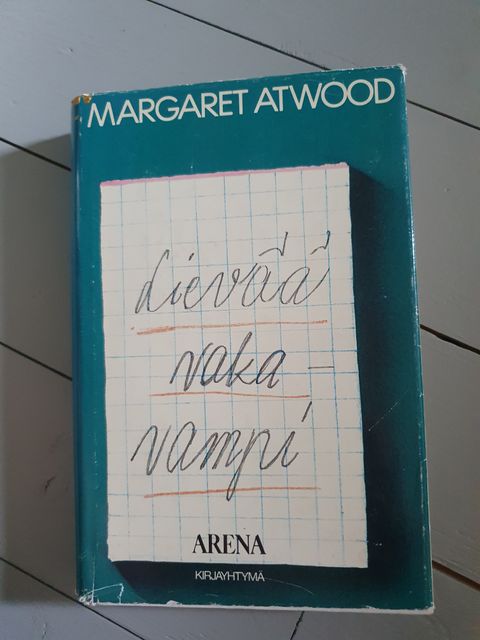 MARGARET ATWOOD
Lievää
vaka-
vampi
ARENA
KIRJAYHTYMÄ